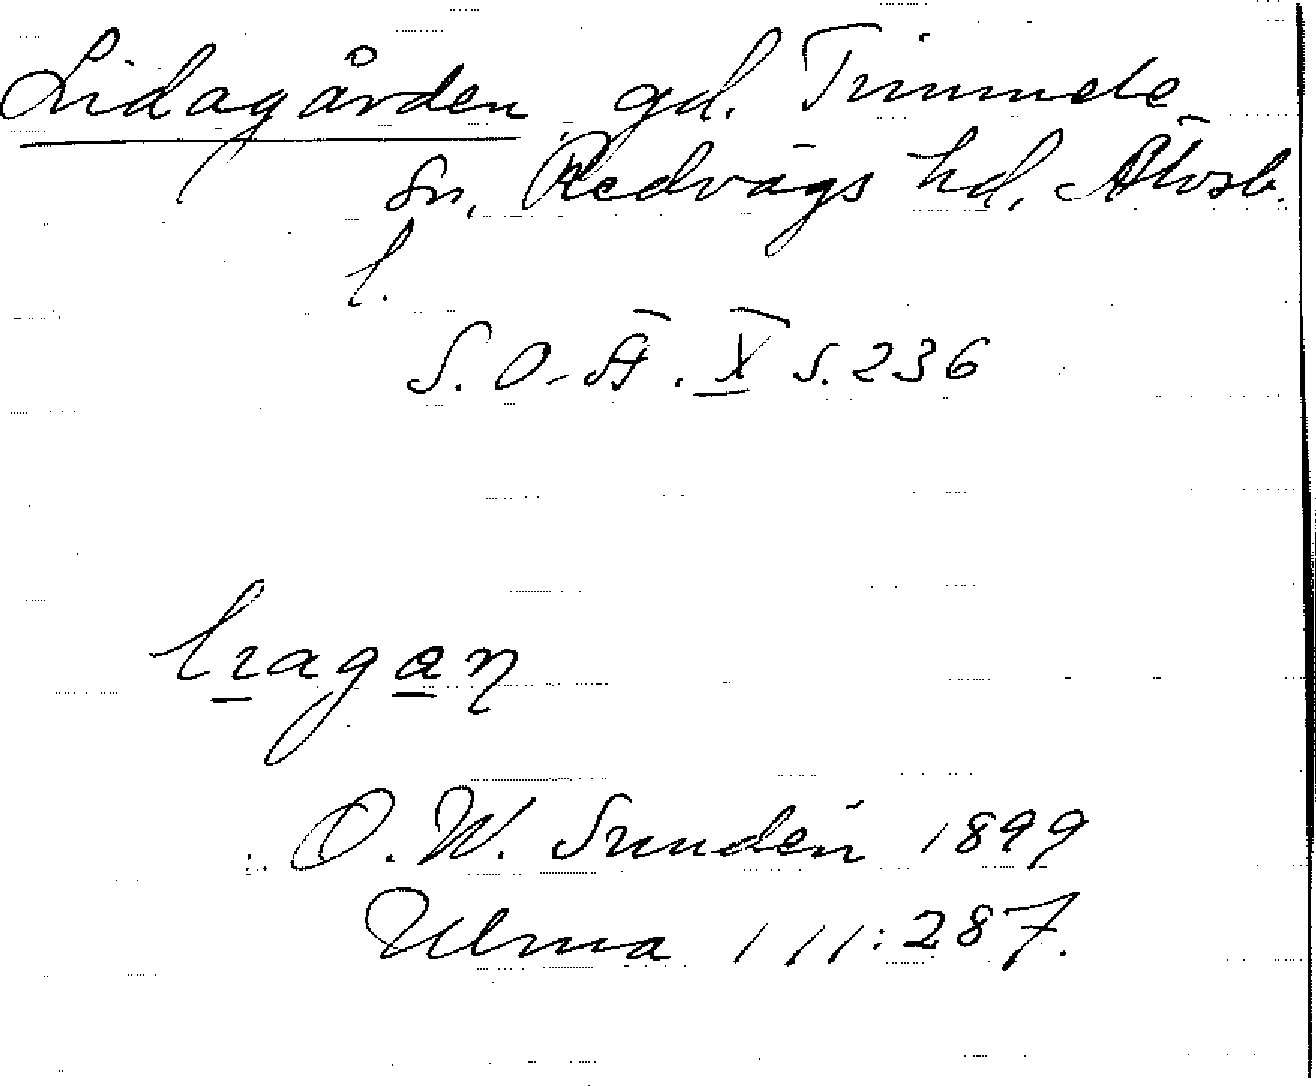 Lidagården gd. Timmele
sn, Redvägs hd, Älvsb.
l.
S.O.-Ä. X s. 236
lıagan
O. W. Sundén 1899
Ulma 111:287.